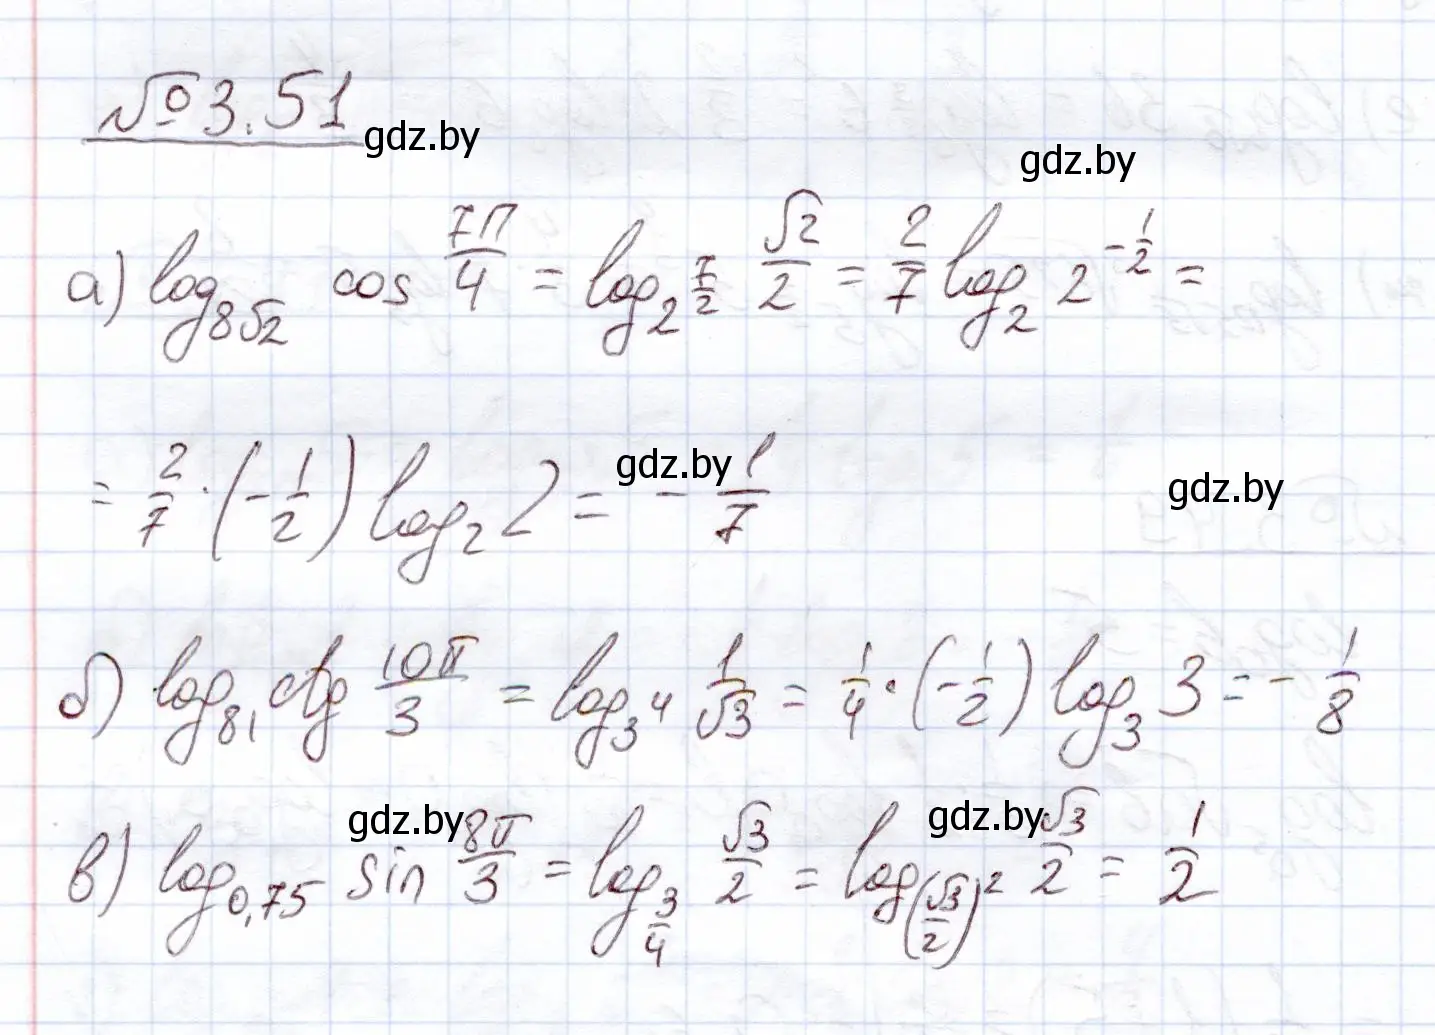 № 3.51
gdz.by
gdz.by
а) log_{8√2} cos 7π/4 = log_{2^{7/2}} √2/2 = 2/7 log_2 2^{-1/2} =
= 2/7 · (-1/2) log_2 2 = - 1/7
gdz.by
gdz.by
б) log_{81} ctg 10π/3 = log_{3^4} 1/√3 = 1/4 · (-1/2) log_3 3 = - 1/8
gdz.by
gdz.by
в) log_{0,75} sin 8π/3 = log_{3/4} √3/2 = log_{(√3/2)^2} √3/2 = 1/2